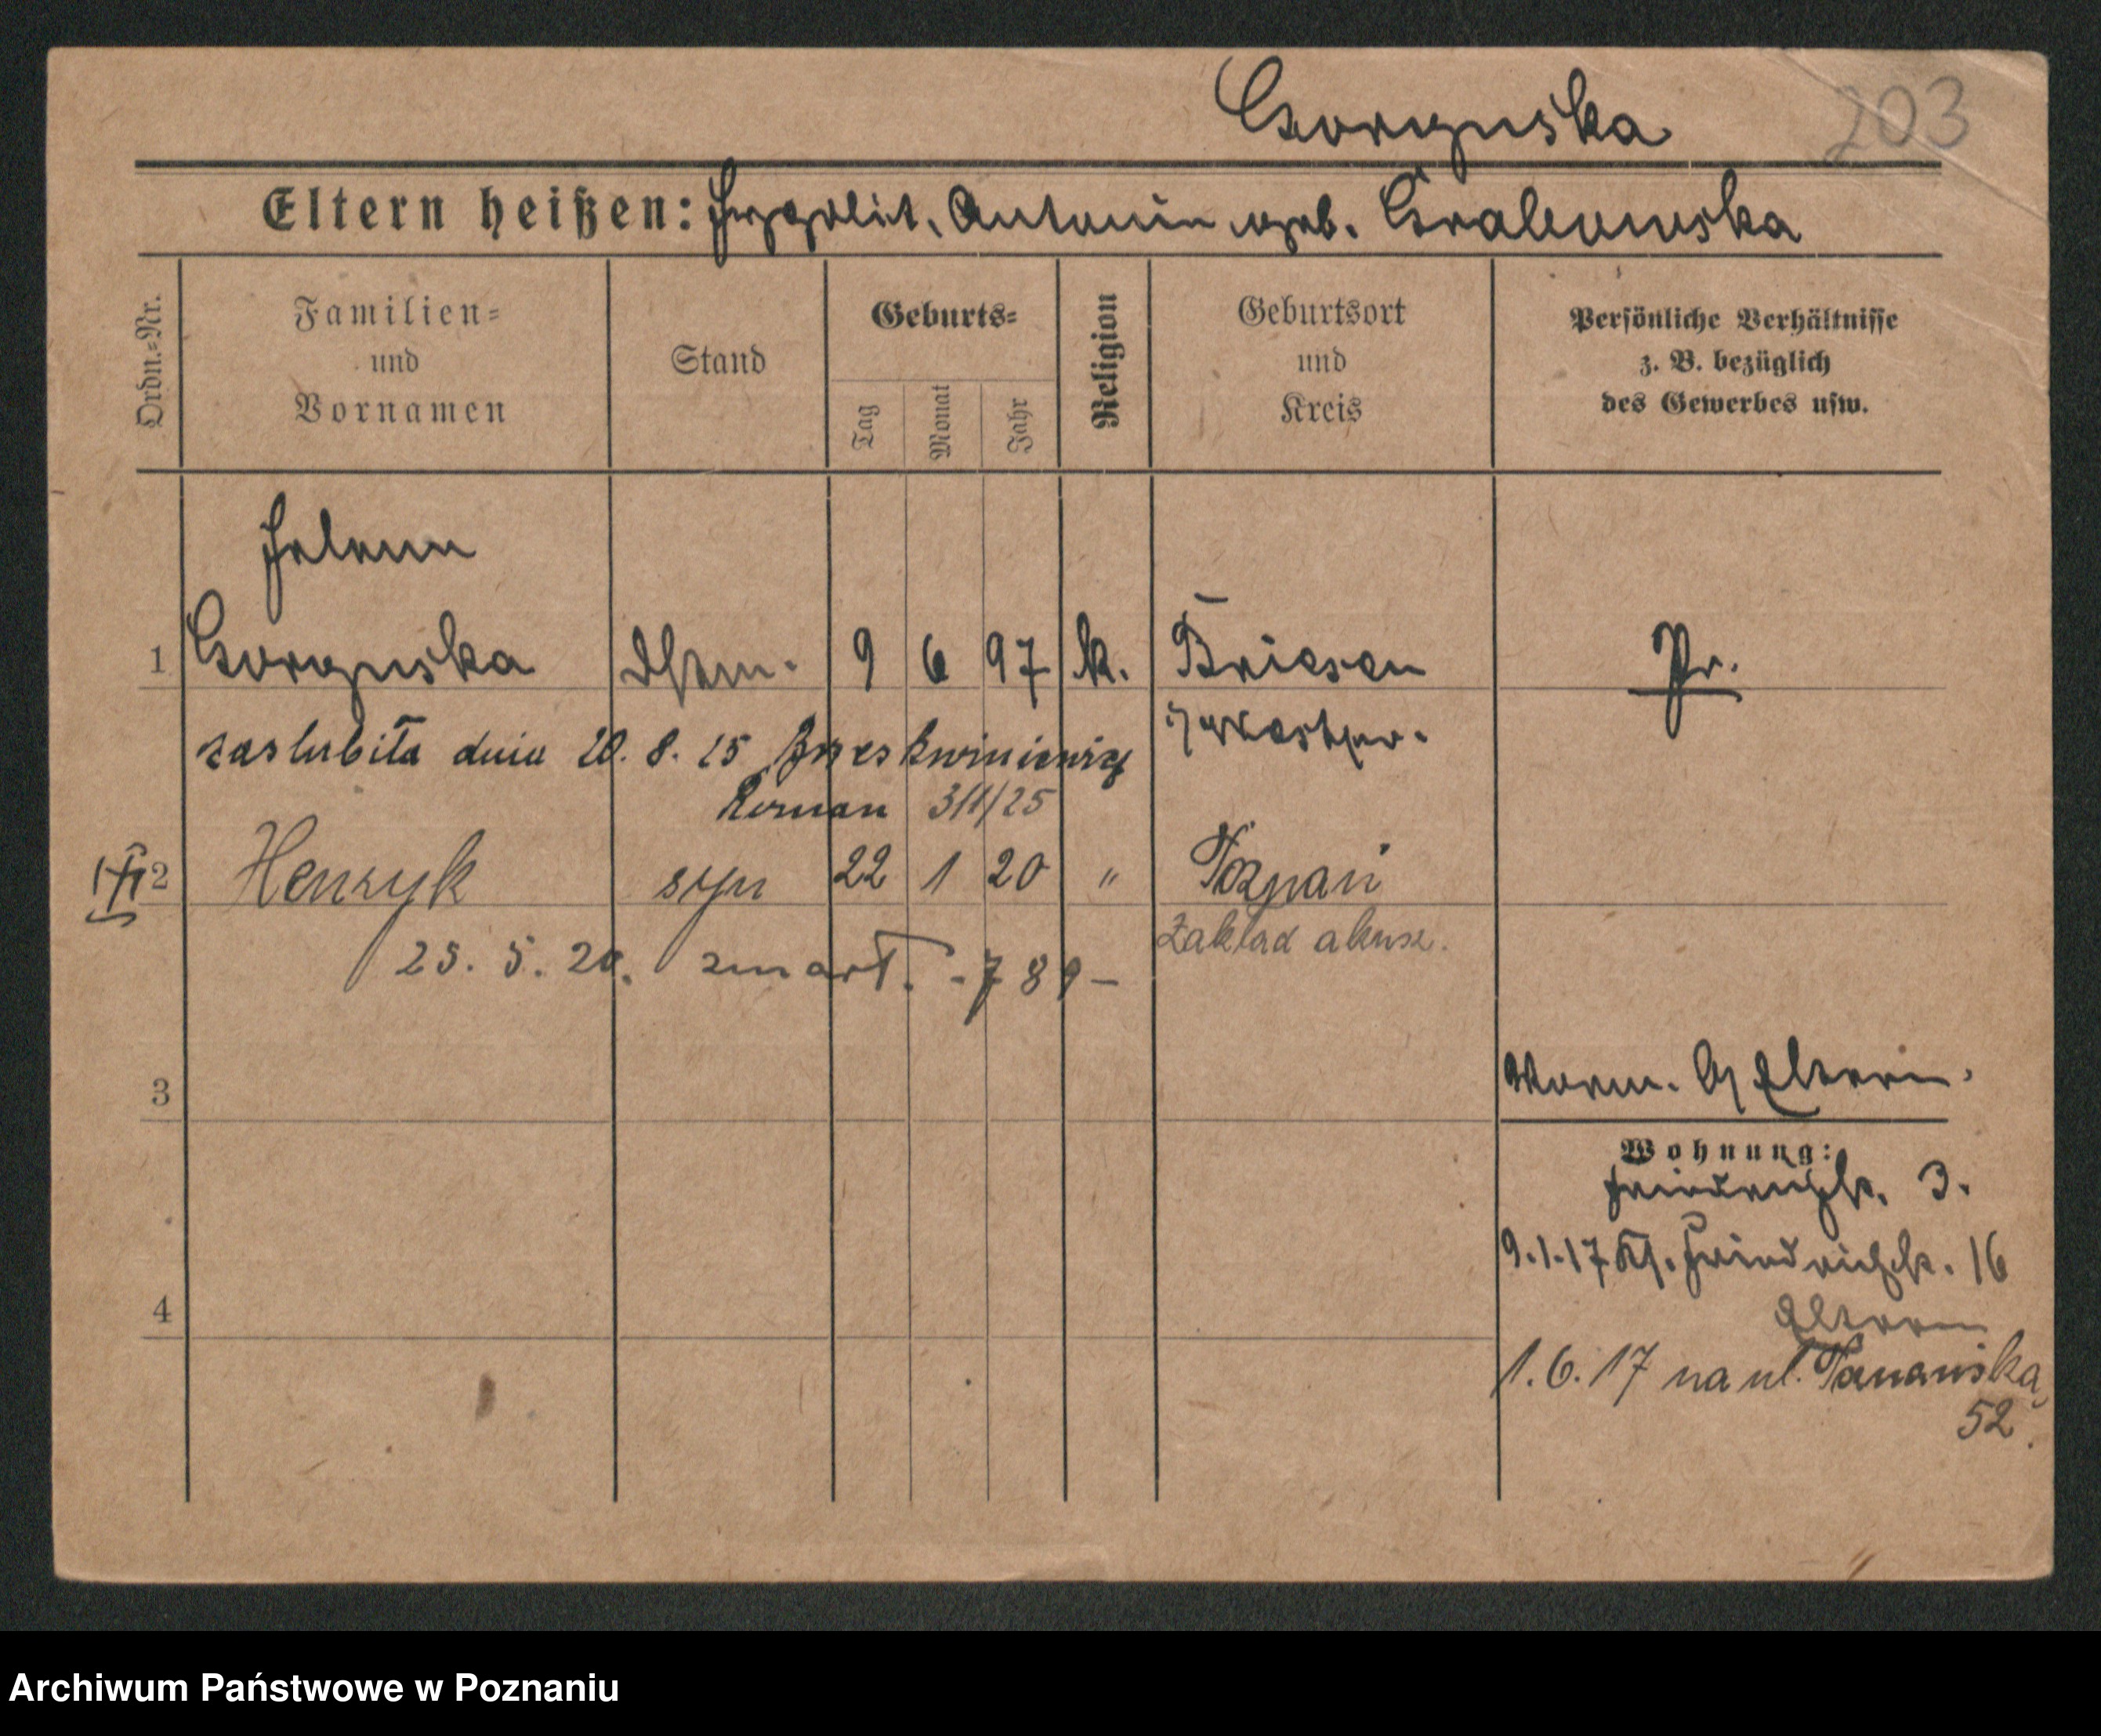 Gorzynska 203
Eltern heißen: Hyppolit, Antonin geb. Grabowska
Ordn.-Nr.
Familien- und Vornamen
Stand
Geburts-
Tag
Monat
Jahr
Religion
Geburtsort und Kreis
Persönliche Verhältnisse
z. B. bezüglich
des Gewerbes usw.
Helene
1 9 6 97 k. Briesen Pr.
Westpr.
zaslubiła dnia 8. 25
Roman 3/11/25
2 Henryk syn 22 1 20 " Poznań
Zakład akusz.
25. 5. 20. zmarł. - 789 -
3
Eltern.
Wohnung:
Friedrichstr. 3.
9.1.17 Kl. Friedrichstr. 16
Eltern
4
1.6.17 na ul.
52.
Archiwum Państwowe w Poznaniu